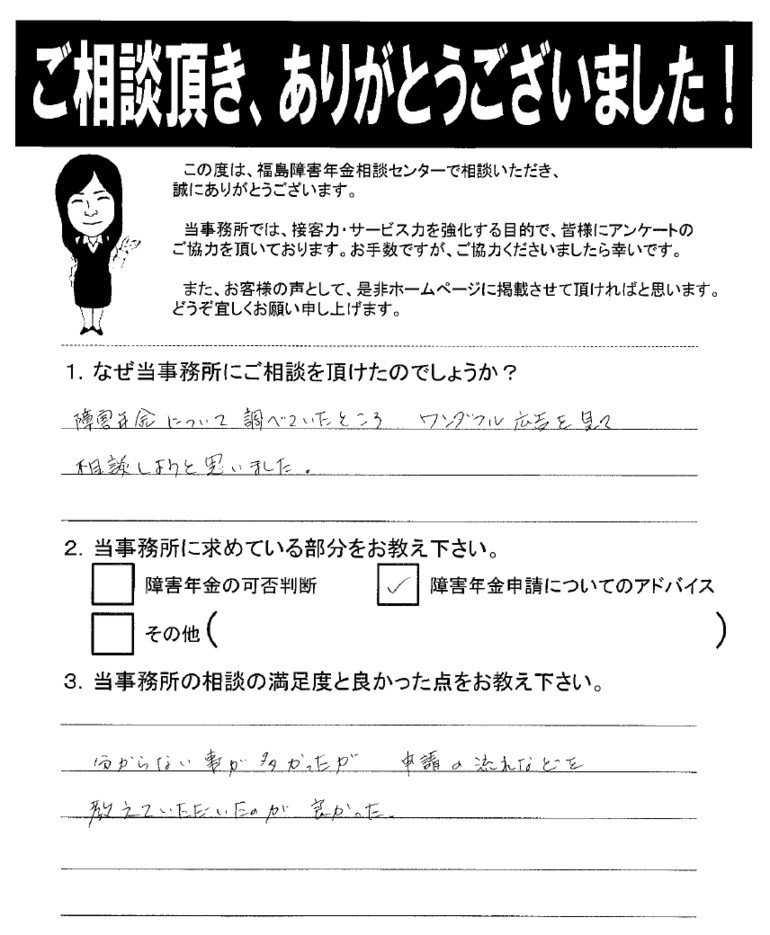 ご相談頂き、ありがとうございました！
この度は、福島障害年金相談センターで相談いただき、
誠にありがとうございます。
当事務所では、接客力・サービス力を強化する目的で、皆様にアンケートの
ご協力を頂いております。お手数ですが、ご協力くださいましたら幸いです。
また、お客様の声として、是非ホームページに掲載させて頂ければと思います。
どうぞ宜しくお願い申し上げます。
1. なぜ当事務所にご相談を頂けたのでしょうか？
障害年金について調べていたところ ワンダフル広告を見て
相談しようと思いました。
2. 当事務所に求めている部分をお教え下さい。
障害年金の可否判断 ✓ 障害年金申請についてのアドバイス
その他( )
3. 当事務所の相談の満足度と良かった点をお教え下さい。
分からない事が多かったが 申請の流れなどを
教えていただいたのが良かった。